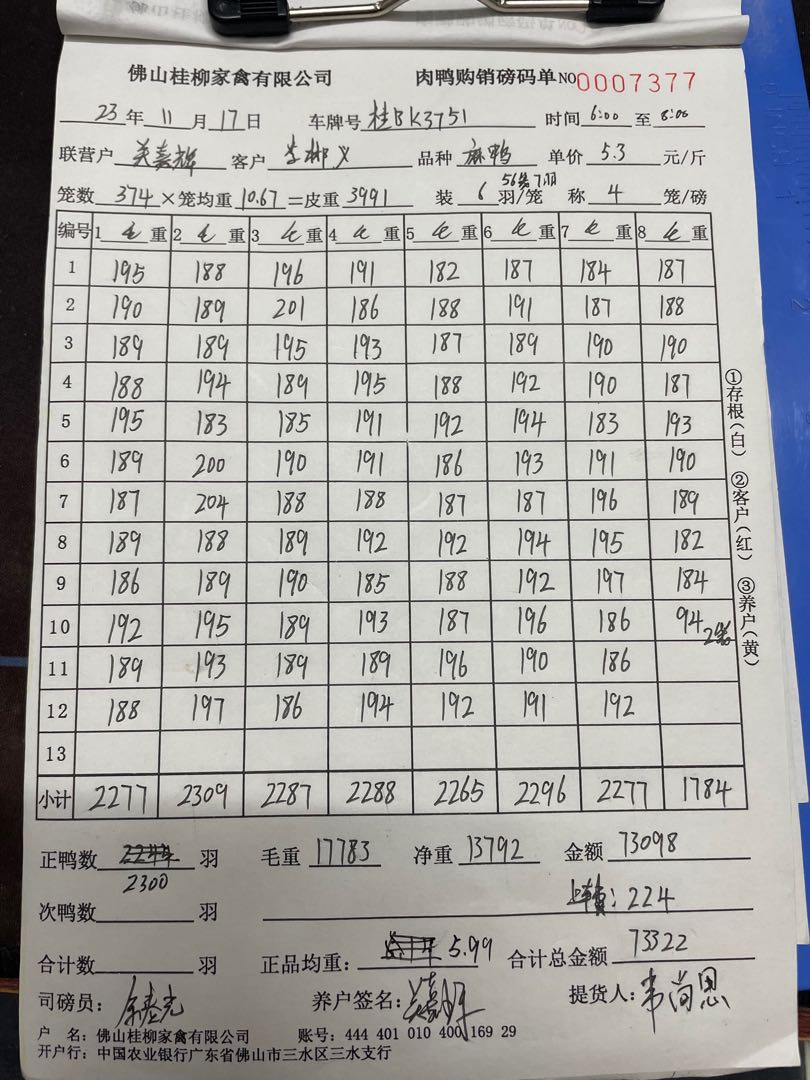 佛山桂柳家禽有限公司 肉鸭购销磅码单 NO 0007377
23年 11月 17日 车牌号 桂BK3751 时间 6:00 至 8:00
联营户 客户 品种 麻鸭 单价 5.3 元/斤
56笼7羽
笼数 374 ×笼均重 10.67 =皮重 3991 装 6 羽/笼 称 4 笼/磅
编号 1 毛 重 2 毛 重 3 毛 重 4 毛 重 5 毛 重 6 毛 重 7 毛 重 8 毛 重
1 195 188 196 191 182 187 184 187
2 190 189 201 186 188 191 187 188
3 189 189 195 193 187 189 190 190
4 188 194 189 195 188 192 190 187
5 195 183 185 191 192 194 183 193
6 189 200 190 191 186 193 191 190
7 187 204 188 188 187 187 196 189
8 189 188 189 192 192 194 195 182
9 186 189 190 185 188 192 197 184
10 192 195 189 193 187 196 186 94 2笼
11 189 193 189 189 196 190 186
12 188 197 186 194 192 191 192
13
小计 2277 2309 2287 2288 2265 2296 2277 1784
①存根(白) ②客户(红) ③养户(黄)
正鸭数 羽 毛重 17783 净重 13792 金额 73098
2300
次鸭数 羽 : 224
合计数 羽 正品均重: 5.99 合计总金额 73322
司磅员: 养户签名: 提货人: 韦尚恩
户 名: 佛山桂柳家禽有限公司 账号: 444 401 010 400 169 29
开户行: 中国农业银行广东省佛山市三水区三水支行